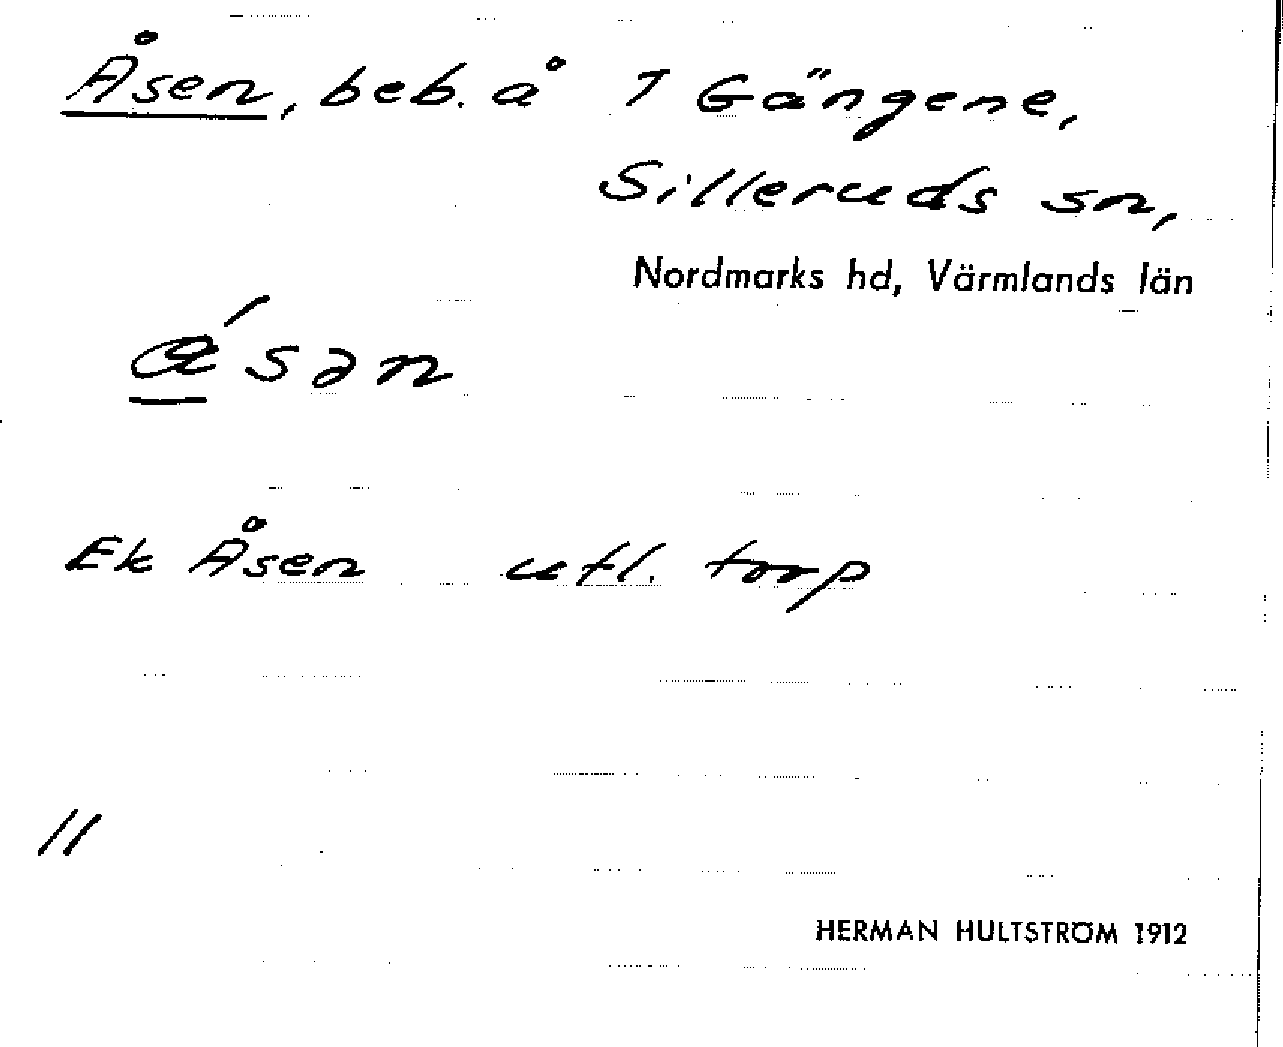 Åsen, beb. å 7 Gängene,
Silleruds sn,
Nordmarks hd, Värmlands län
åsən
Ek Åsen utl. torp
11
HERMAN HULTSTRÖM 1912